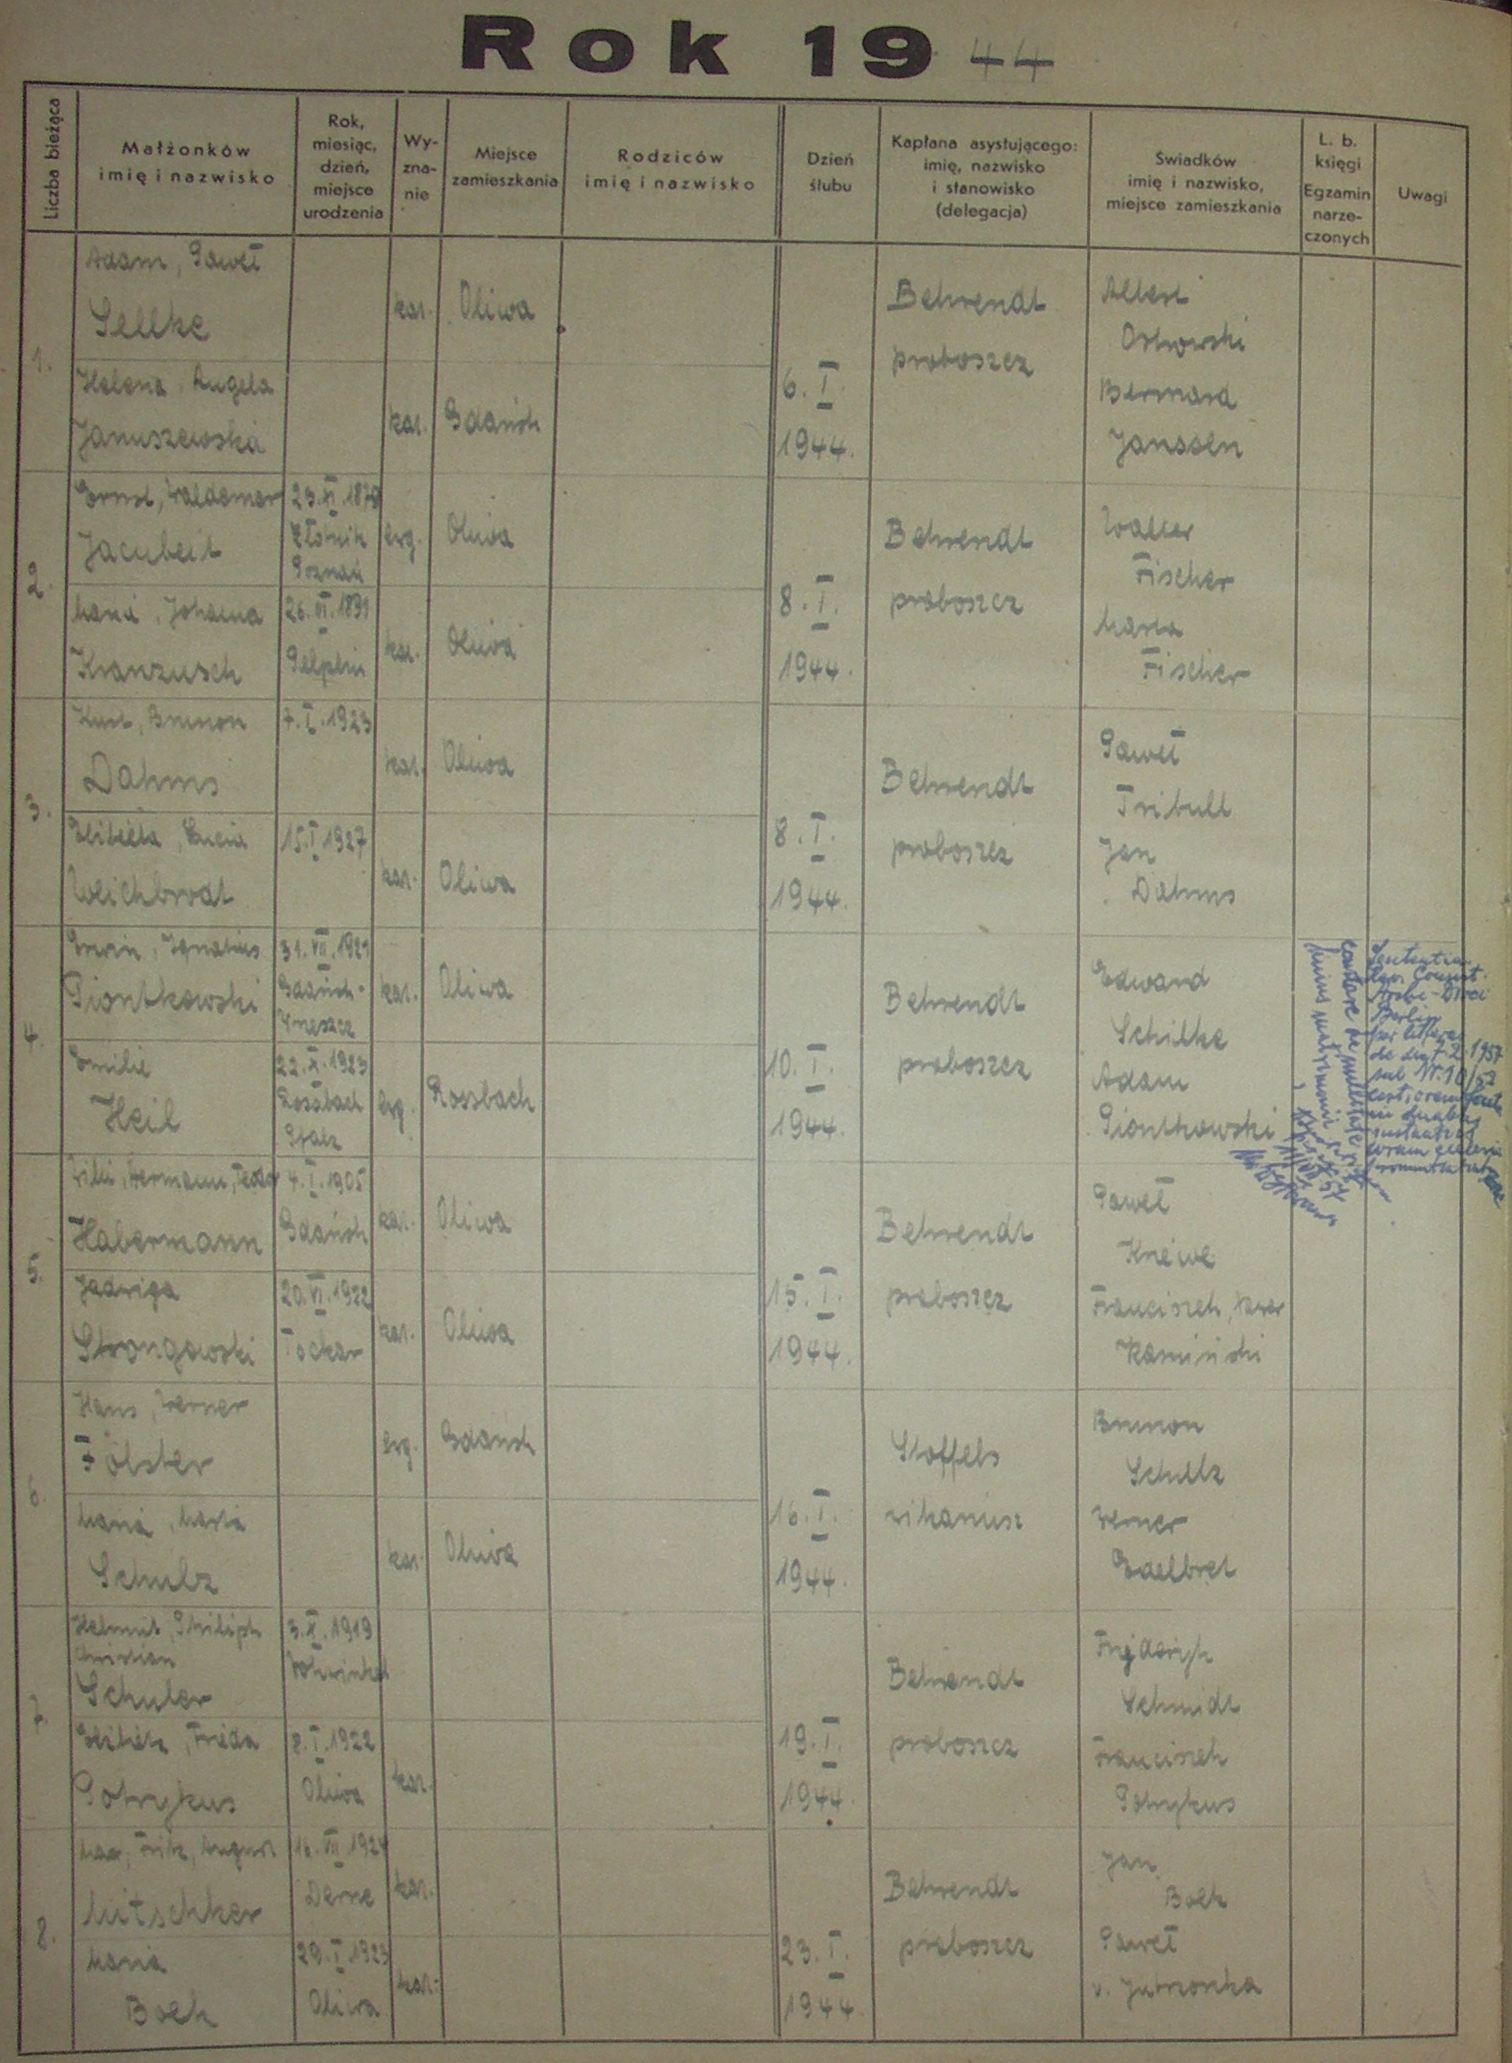 Rok 1944
Liczba bieżąca
Małżonków
imię i nazwisko
Rok,
miesiąc,
dzień,
miejsce
urodzenia
Wy-
zna-
nie
Miejsce
zamieszkania
Rodziców
imię i nazwisko
Dzień
ślubu
Kapłana asystującego:
imię, nazwisko
i stanowisko
(delegacja)
Świadków
imię i nazwisko,
miejsce zamieszkania
L. b.
księgi
Egzamin
narze-
czonych
Uwagi
1.
Adam, Paweł
Sellke
kat.
Oliwa
Helena, Angela
Januszewska
kat.
Gdańsk
6. I.
1944.
Behrendt
proboszcz
Albert
Ostrowski
Bernard
Janssen
2.
Ernst, Waldemar
Jacubeit
Poznań
ewg.
Oliwa
Maria, Johanna
Kranzusch
Pelplin
kat.
Oliwa
8. I.
1944.
Behrendt
proboszcz
Walter
Fischer
Marta
Fischer
3.
Kurt, Brunon
Dahms
7. I. 1923
kat.
Oliwa
Elżbieta, Lucia
Weichbrodt
15. I 1927
kat.
Oliwa
8. I.
1944.
Behrendt
proboszcz
Paweł
Tribull
Jan
Dahms
4.
Erwin, Ignatius
Piontkowski
31. VII. 1921
Gdańsk-
Wrzeszcz
kat.
Oliwa
Emilie
Heil
22. X. 1923
Rossbach
Pfalz
ewg.
Rossbach
10. I.
1944.
Behrendt
proboszcz
Edward
Schilke
Adam
Piontkowski
Sententia
Berlin
per litteras
constare de nullitate
huius matrimonii
5.
Willi, Hermann, Teodor
Habermann
4. I. 1905
Gdańsk
kat.
Oliwa
Jadwiga
Strongowski
20. VI. 1922
Tockar
kat.
Oliwa
15. I.
1944.
Behrendt
proboszcz
Paweł
Knewe
Franciszek, Xawer
Kamiński
6.
Hans, Werner
Fölster
ewg.
Gdańsk
Maria, Marta
Schulz
kat.
Oliwa
16. I.
1944.
Stoffels
wikariusz
Brunon
Schulz
Werner
7.
Helmut, Philipp
Christian
Schuler
3. X. 1919
Elżbieta, Frieda
Potrykus
8. I. 1922
Oliwa
kat.
19. I.
1944.
Behrendt
proboszcz
Fryderyk
Schmidt
Franciszek
Potrykus
8.
Max, Fritz, August
Mitschker
16. VII 1924
Derne
kat.
Maria
Boek
29. I 1923
Oliwa
kat.
23. I.
1944
Behrendt
proboszcz
Jan
Boek
Paweł
v. Jutrzonka